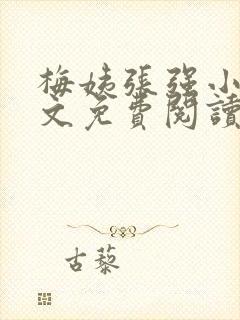 梅姨張强小
文免費閱讀
古藜